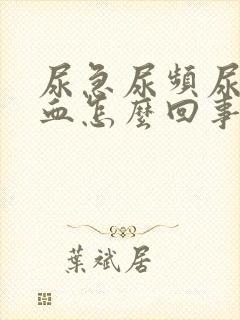 尿急尿頻尿
血怎麼回事
葉斌居